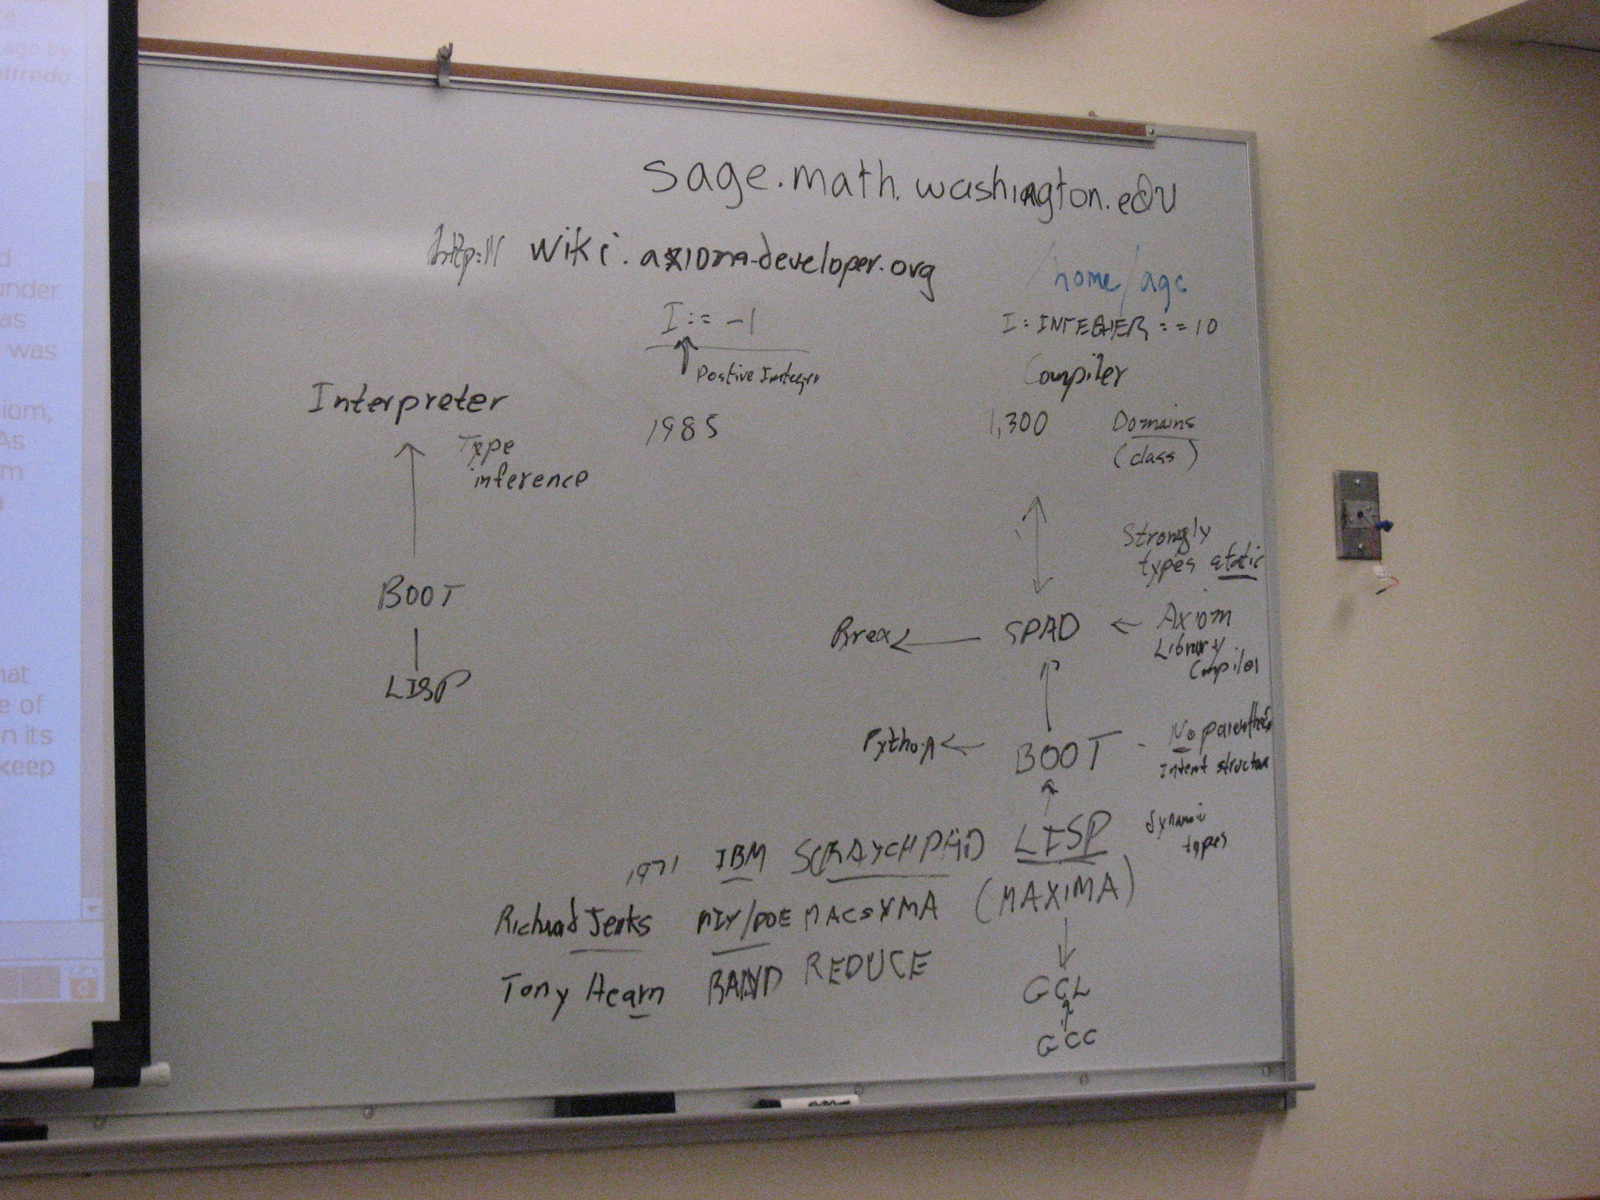 ago by
d
under
as
was
iom,
As
m
hat
e of
n its
keep
sage.math.washington.edu
http:// wiki.axiom-developer.org
/home/agc
I := -1
Postive Integer
I : INTEGER := = 10
Compiler
Interpreter
Type
inference
1985
1,300 Domains
(class)
Strongly
types static
BOOT
LISP
SPAD ← Axiom
Library
Compiler
Python ← BOOT - No
Indent structure
dynamic
types
1971 IBM SCRATCHPAD LISP
Richard Jenks MIT/DOE MACSYMA (MAXIMA)
Tony Hearn RAND REDUCE
GCL
GCC